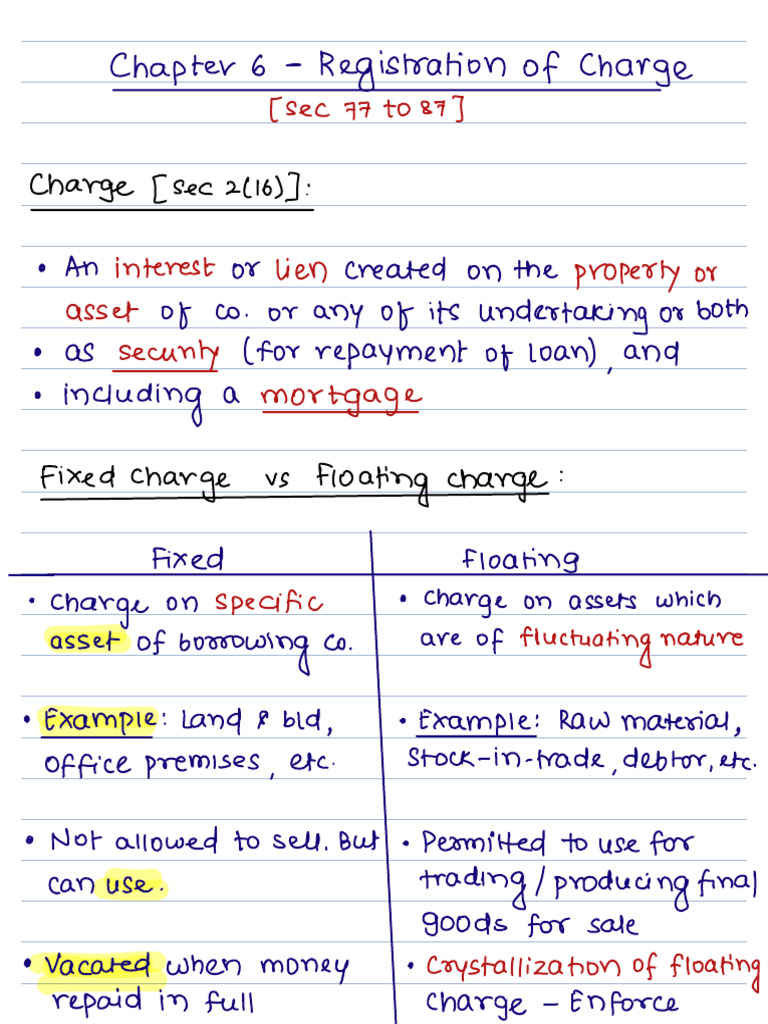 Chapter 6 - Registration of Charge
[Sec 77 to 87]
Charge [Sec 2(16)]:
• An interest or lien created on the property or
asset of co. or any of its undertaking or both
• as security (for repayment of loan), and
• including a mortgage
Fixed Charge vs Floating charge:
Fixed
• Charge on specific
asset of borrowing co.
• Example: Land & bld,
office premises, etc.
• Not allowed to sell. But
can use.
• Vacated when money
repaid in full
Floating
• Charge on assets which
are of fluctuating nature
• Example: Raw material,
Stock-in-trade, debtor, etc.
• Permitted to use for
trading/producing final
goods for sale
• Crystallization of floating
charge - Enforce